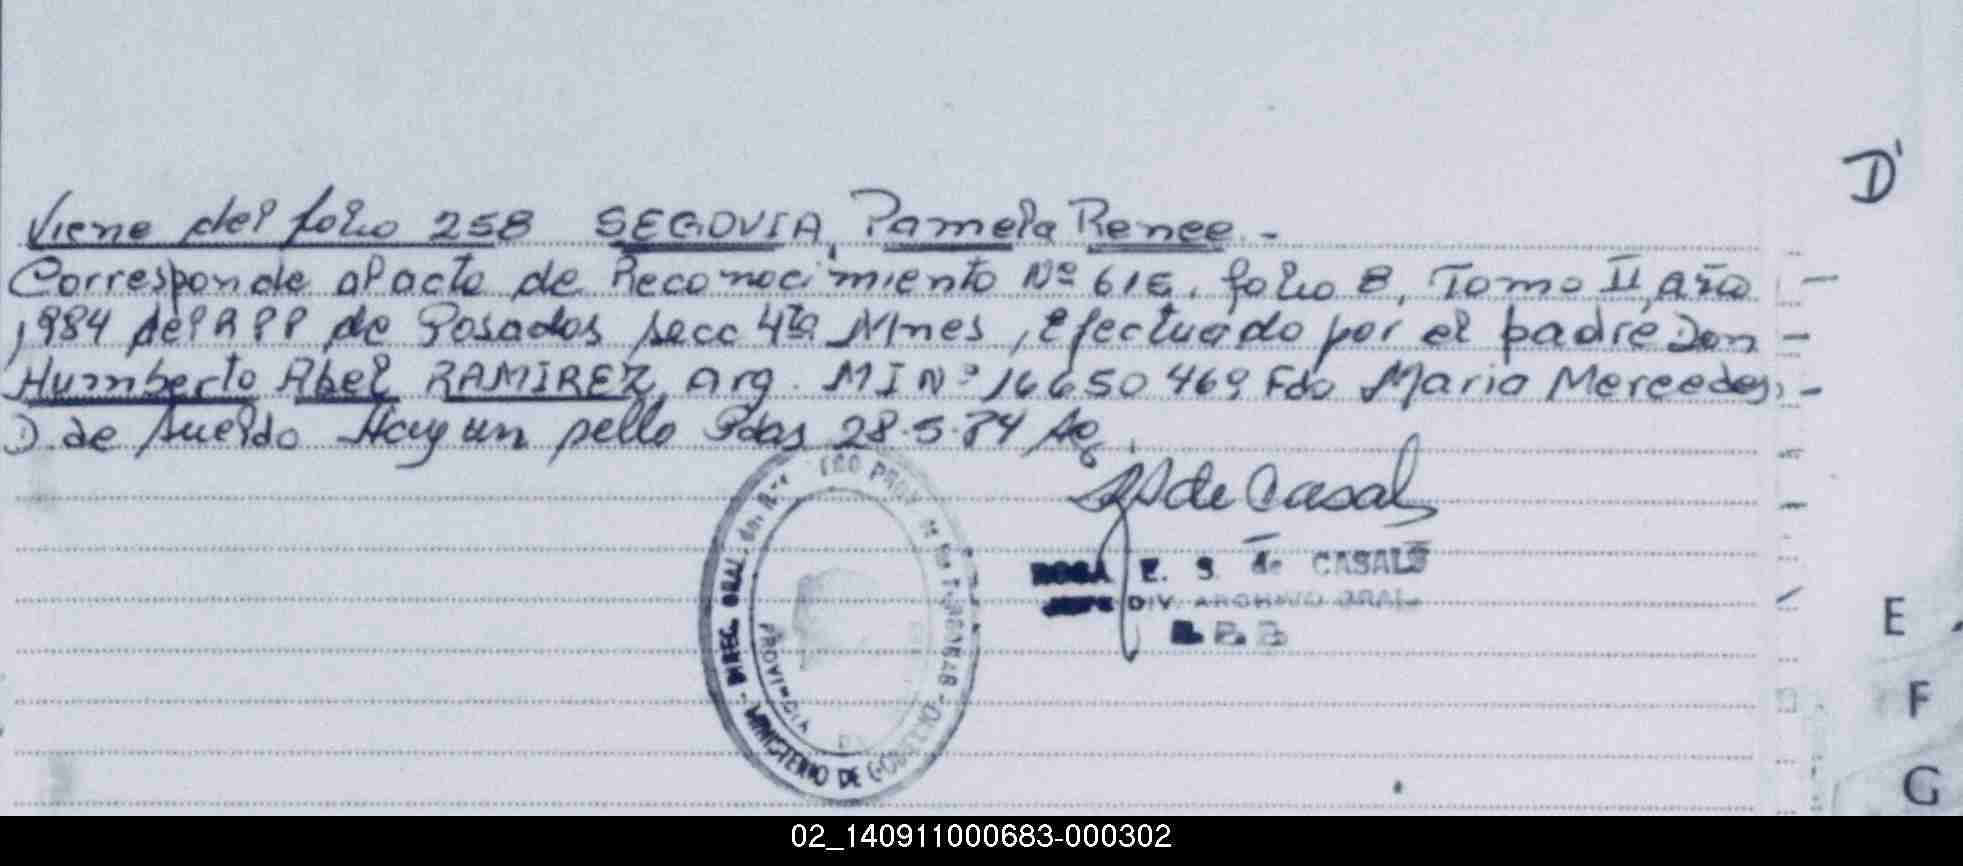 D'
Viene del folio 258 SEGOVIA, Pamela Renee.-
Corresponde al acta de Reconocimiento Nº 616, folio 8, Tomo II, año
1984 del RPP de Posadas secc 4ta Mnes, Efectuado por el padre Don
Humberto Abel RAMIREZ, Arg. MI Nº 16650469 Fdo Maria Mercedes
D. de Sueldo Hay un sello Pdas 28.5.84
de Casals
ROSA E. S. de CASALS
JEFE DIV. ARCHIVO GRAL.
R. P. P.
DIREC. GRAL. del PROV. de las Personas
PROVINCIA
MINISTERIO DE GOBIERNO
E
F
G
02_140911000683-000302